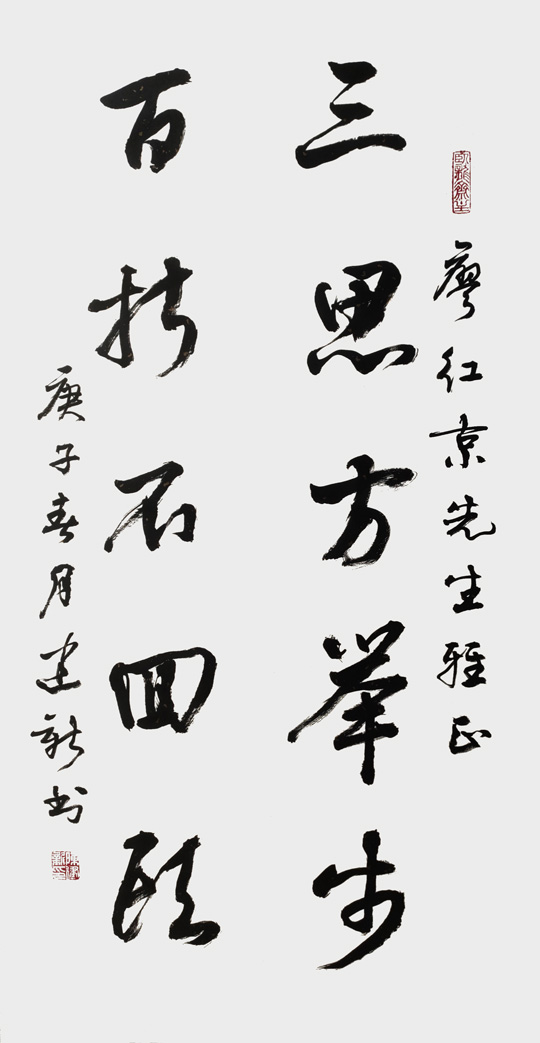 廖红京先生雅正
三思方举步
百折不回头
庚子春月建新书